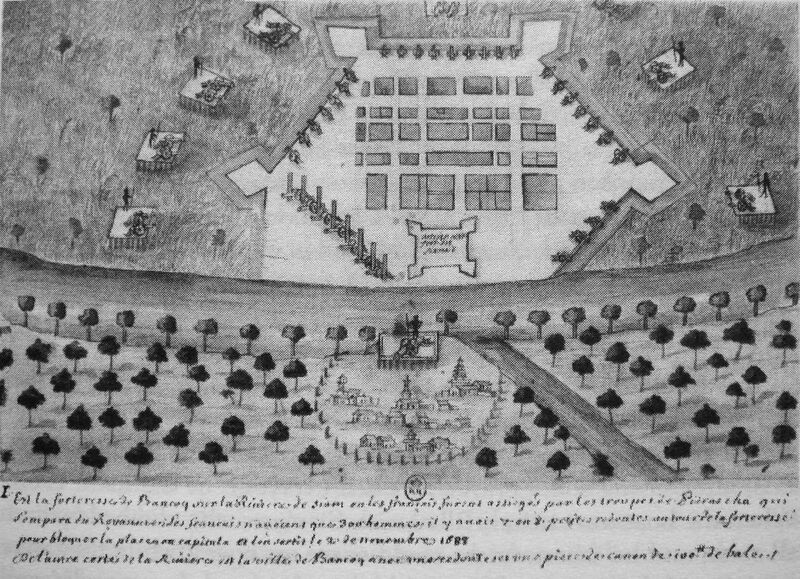 I Est la forteresse de Bancoq sur la Riviere de Siam ou les francais furent assiegés par les troupes de qui
s'empara du Royaume les francais n'avoient que 300 hommes, il y avait 7 ou 8 petites redoutes autour de la forteresse
pour bloquer la place, on capitula et l'on sortit le 2 de novembre 1688
De l'autre costé de la Riviere est la ville de Bancoq avec une redoute et une piece de canon de 100# de bale